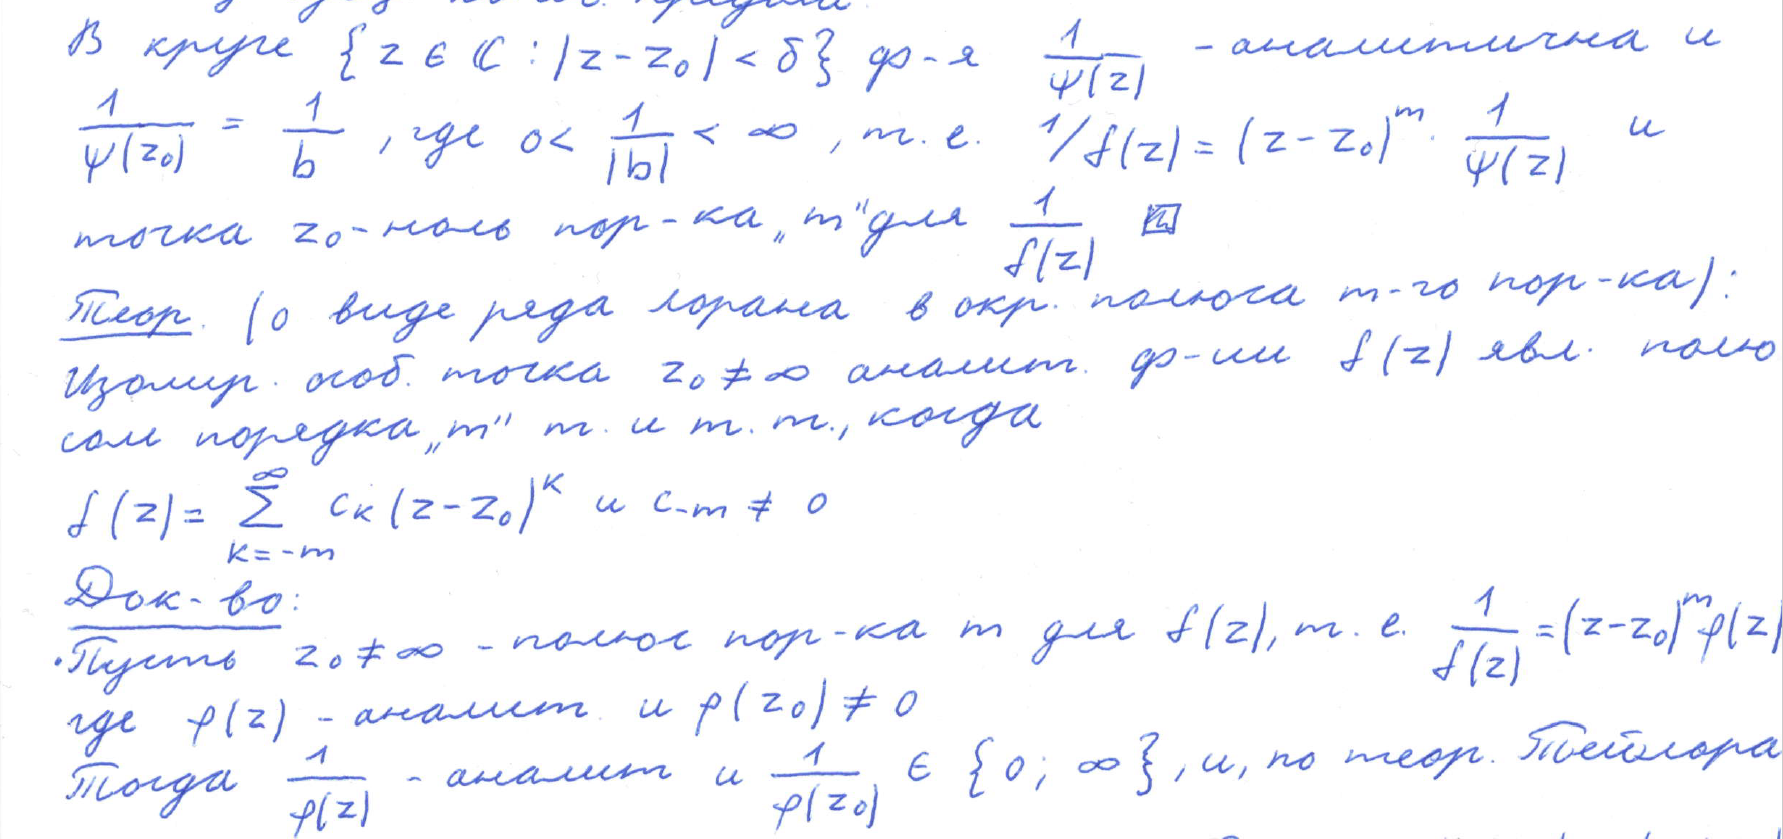 В круге {z ∈ ℂ : |z - z₀| < δ} ф-я 1/ψ(z) - аналитична и
1/ψ(z₀) = 1/b , где 0 < 1/|b| < ∞ , т. е. 1/f(z) = (z - z₀)^m · 1/ψ(z) и
точка z₀ - ноль пор-ка „m" для 1/f(z)
Теор. (о виде ряда Лорана в окр. полюса m-го пор-ка):
Изолир. особ. точка z₀ ≠ ∞ аналит. ф-ии f(z) явл. полю
сом порядка „m" т. и т. т., когда
f(z) = ∑_{k=-m}^{∞} c_k (z - z₀)^k и c_{-m} ≠ 0
Док-во:
·Пусть z₀ ≠ ∞ - полюс пор-ка m для f(z), т. е. 1/f(z) = (z - z₀)^m φ(z)
где φ(z) - аналит. и φ(z₀) ≠ 0
Тогда 1/φ(z) - аналит и 1/φ(z₀) ∈ {0; ∞}, и, по теор. Тейлора